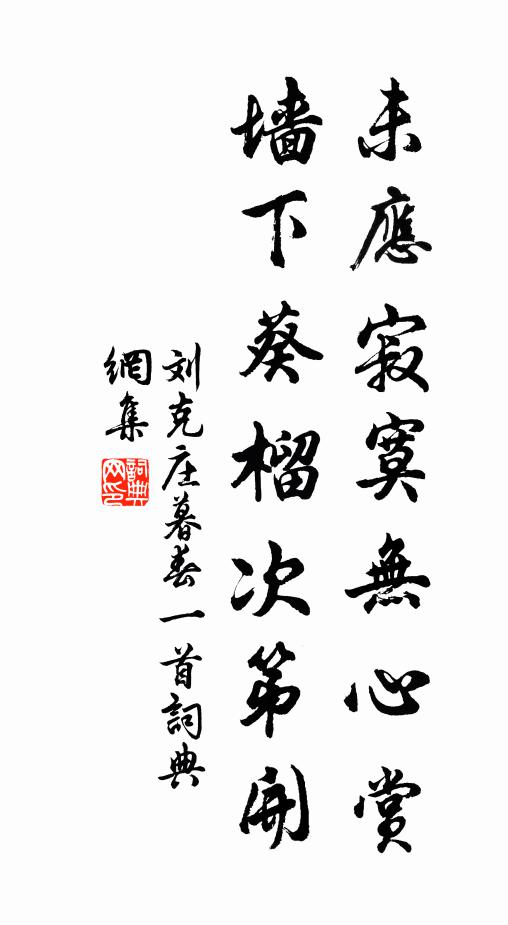 未應寂寞無心赏
墙下葵榴次第開
刘克庄暮春一首詞典
網集
詞典网印